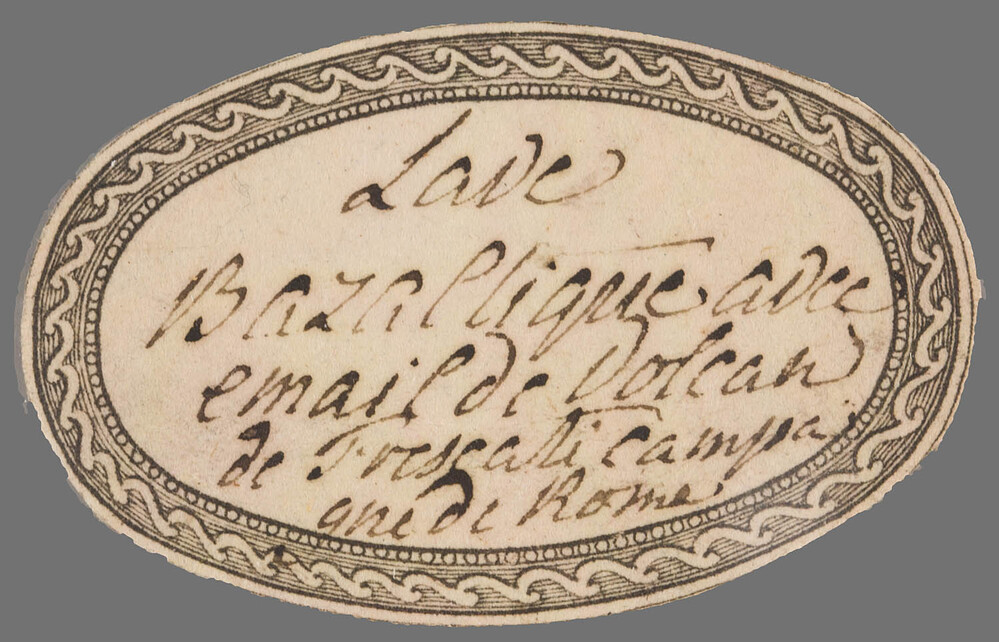 Lave
Bazaltique avec
email de Volcan
de Frescati Campa
gne de Rome